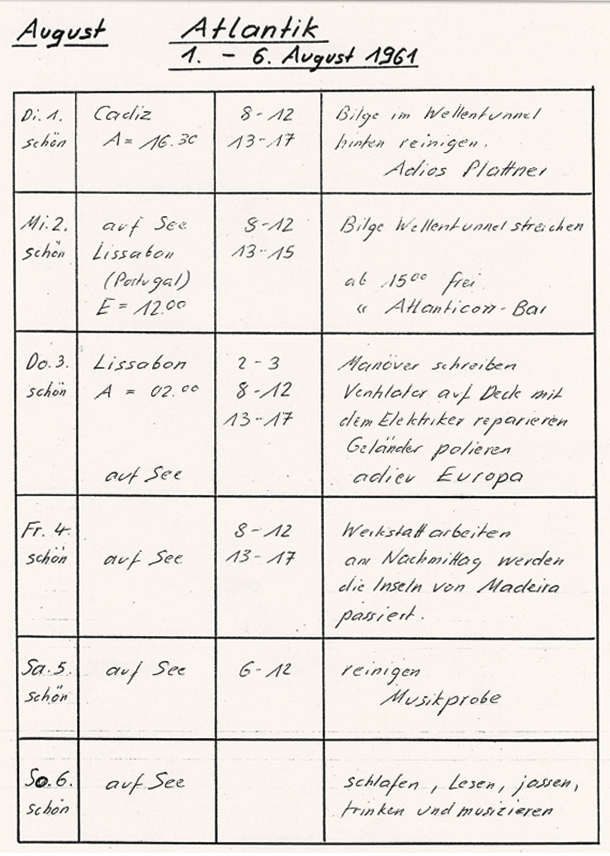 August Atlantik
1. - 6. August 1961
Di. 1. Cadiz 8-12 Bilge im Wellentunnel
schön A = 16.30 13-17 hinten reinigen.
Adios Plattner
Mi. 2. auf See 8-12 Bilge Wellentunnel streichen
schön Lissabon 13-15
(Portugal) ab 15⁰⁰ frei
E = 12.00 " Atlanticon-Bar
Do. 3. Lissabon 2-3 Manöver schreiben
schön A = 02.⁰⁰ 8-12 Ventilator auf Deck mit
13-17 dem Elektriker reparieren
Geländer polieren
auf See adieu Europa
Fr. 4. 8-12 Werkstattarbeiten
schön auf See 13-17 am Nachmittag werden
die Inseln von Madeira
passiert.
Sa. 5. auf See 6-12 reinigen
schön Musikprobe
So. 6. auf See schlafen, Lesen, jassen,
schön trinken und musizieren